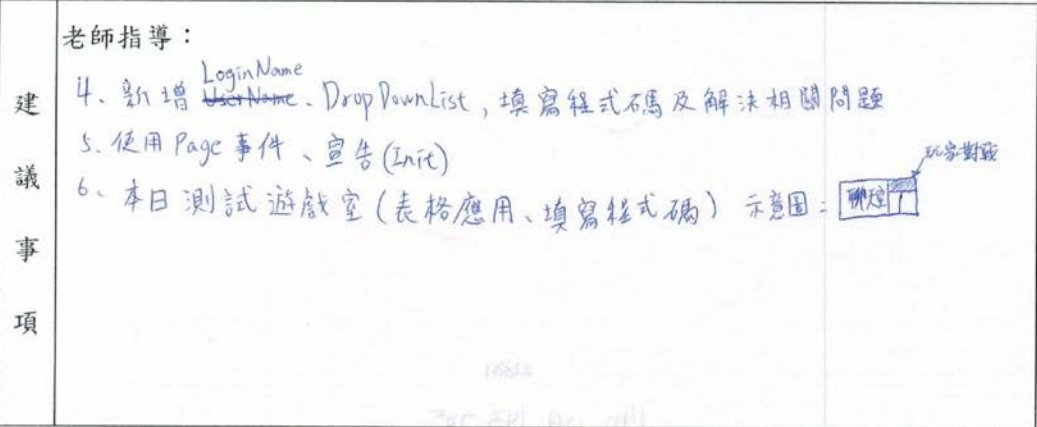 建議事項
老師指導：
LoginName
4、新增 UserName、DropDownList，填寫程式碼及解決相關問題
5、使用Page事件、宣告(Init)
玩家對戰
6、本日測試遊戲室(表格應用、填寫程式碼) 示意圖：聊天室